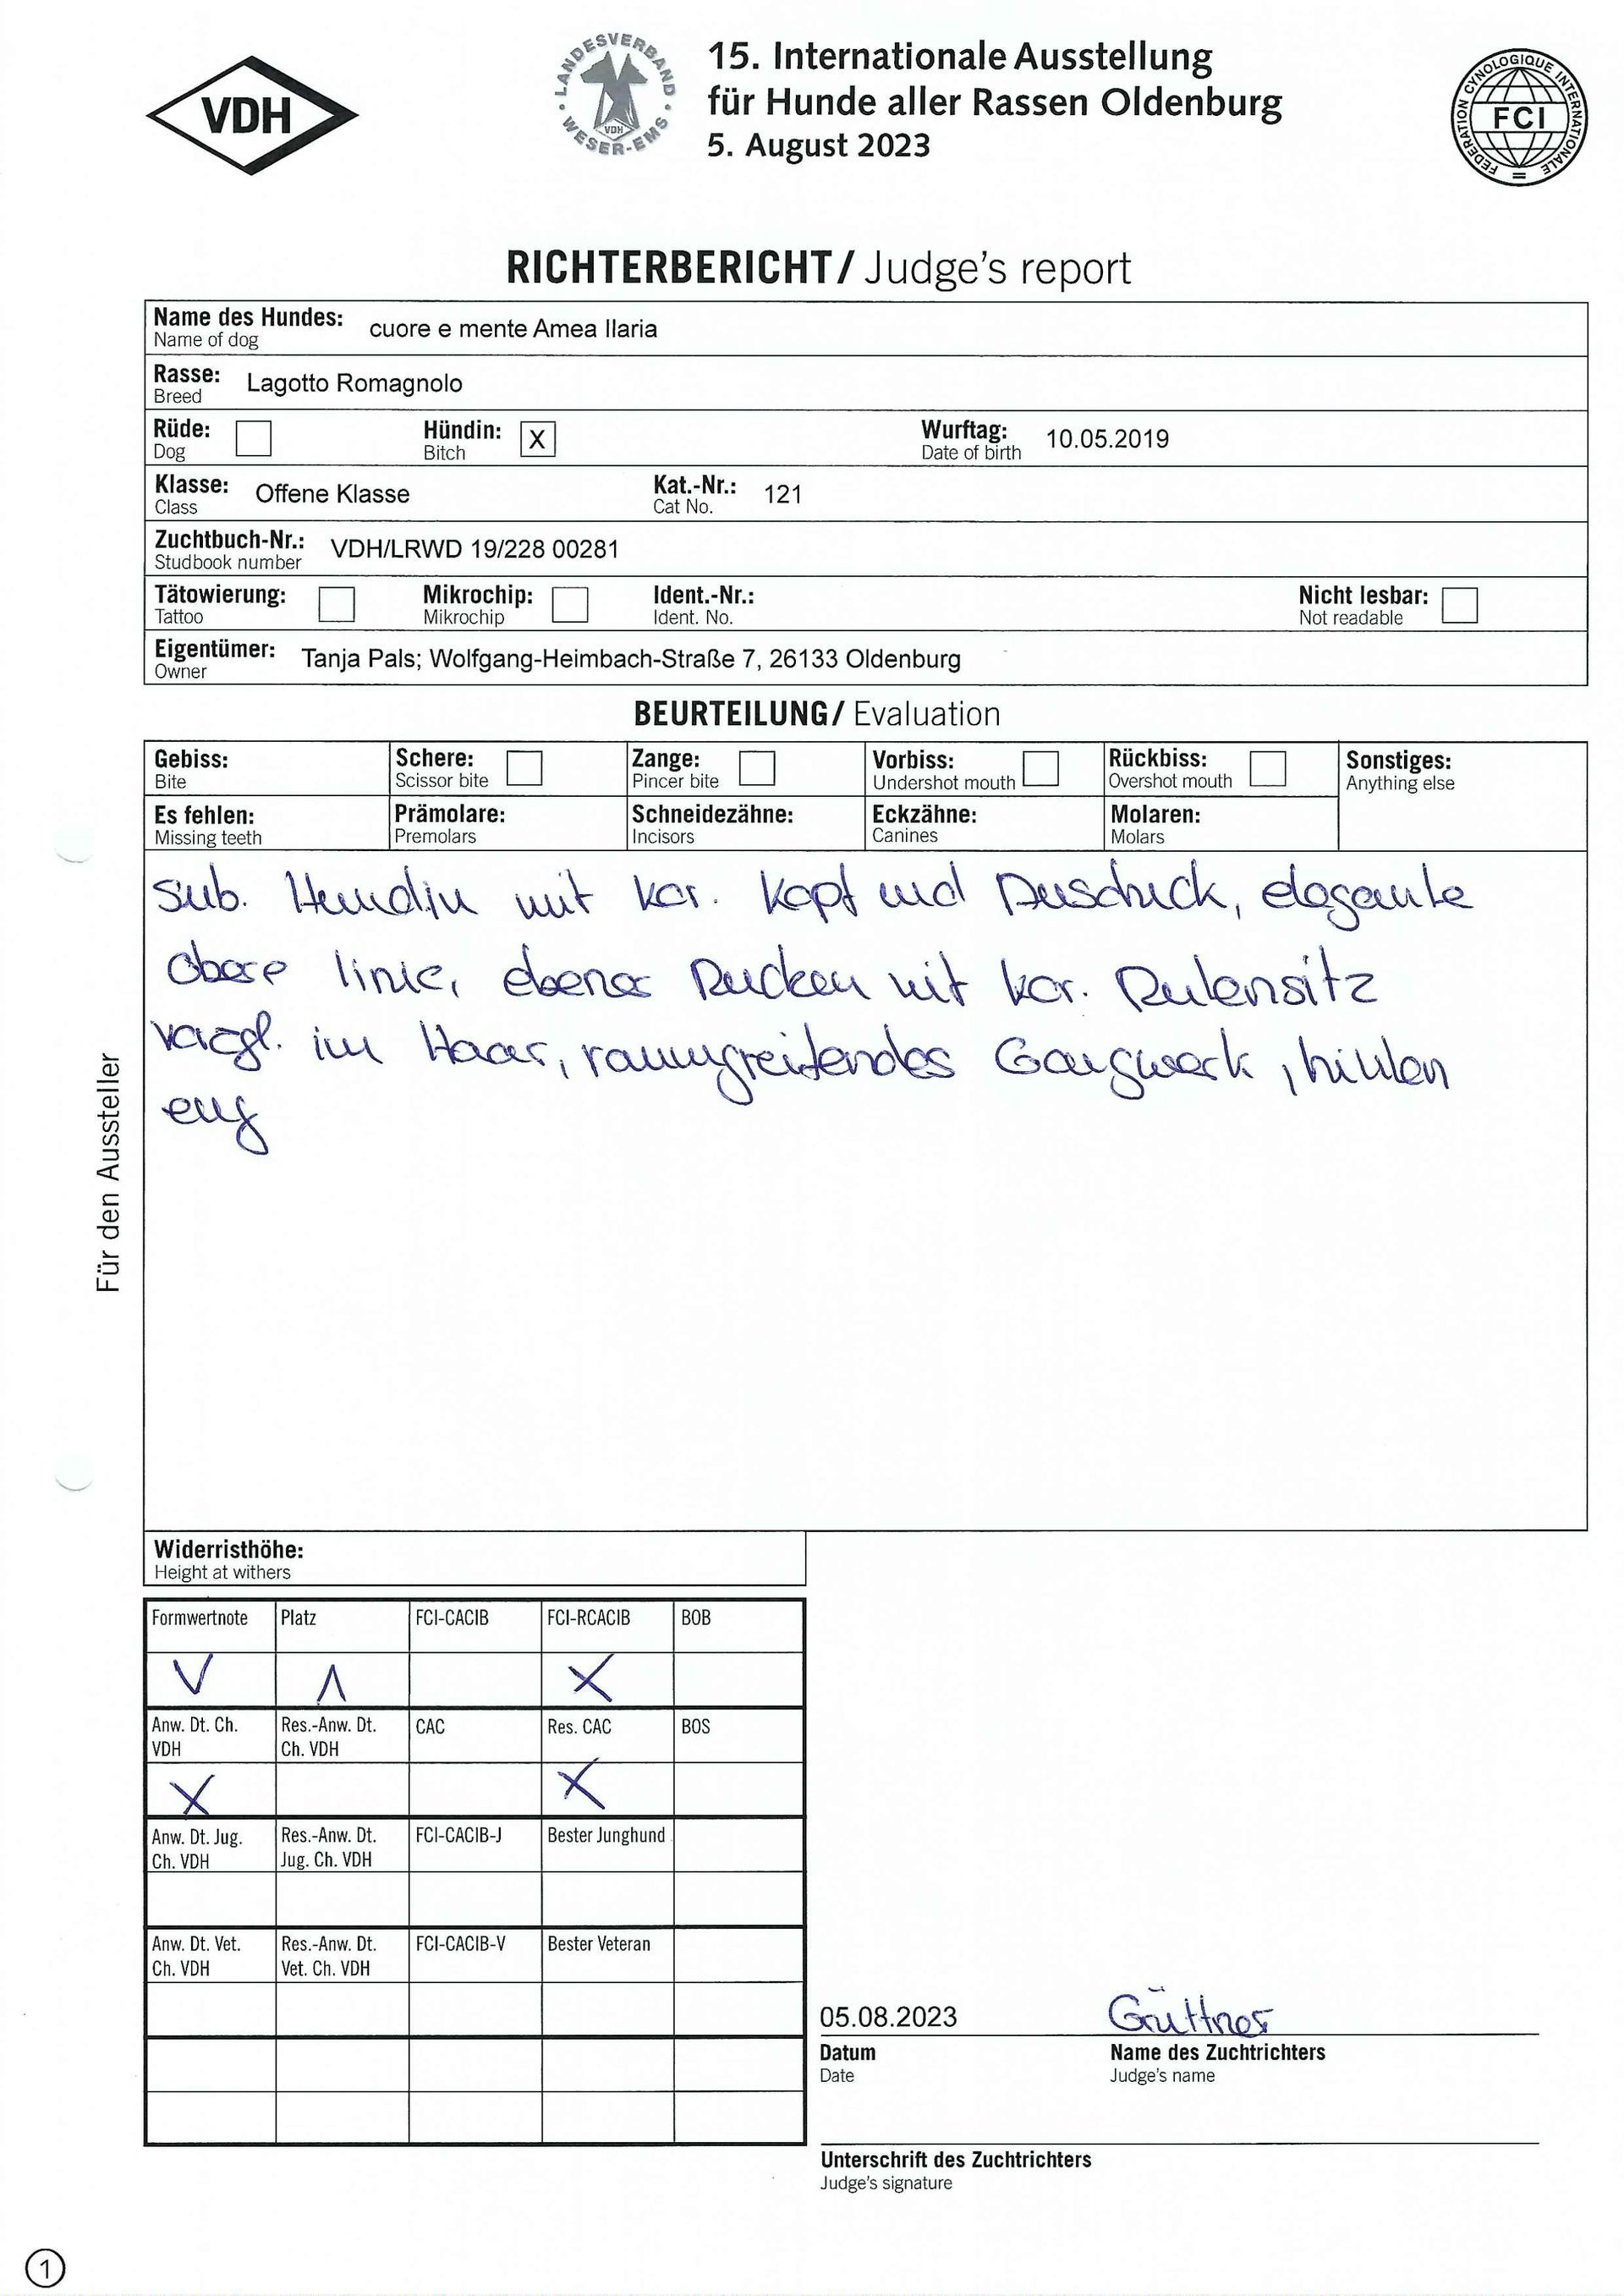 VDH
LANDESVERBAND WESER-EMS
VDH
15. Internationale Ausstellung
für Hunde aller Rassen Oldenburg
5. August 2023
FEDERATION CYNOLOGIQUE INTERNATIONALE
FCI
RICHTERBERICHT/ Judge's report
Name des Hundes: cuore e mente Amea Ilaria
Name of dog
Rasse: Lagotto Romagnolo
Breed
Rüde: Hündin: X Wurftag: 10.05.2019
Dog Bitch Date of birth
Klasse: Offene Klasse Kat.-Nr.: 121
Class Cat No.
Zuchtbuch-Nr.: VDH/LRWD 19/228 00281
Studbook number
Tätowierung: Mikrochip: Ident.-Nr.: Nicht lesbar:
Tattoo Mikrochip Ident. No. Not readable
Eigentümer: Tanja Pals; Wolfgang-Heimbach-Straße 7, 26133 Oldenburg
Owner
BEURTEILUNG/ Evaluation
Gebiss: Schere: Zange: Vorbiss: Rückbiss: Sonstiges:
Bite Scissor bite Pincer bite Undershot mouth Overshot mouth Anything else
Es fehlen: Prämolare: Schneidezähne: Eckzähne: Molaren:
Missing teeth Premolars Incisors Canines Molars
sub. Hundin mit kor. Kopf und Ausdruck, elegante
obere linie, ebener Rucken mit kor. Rutensitz
vorzgl. im Haar, raumgreifendes Gangwerk, hinten
eng
Für den Aussteller
Widerristhöhe:
Height at withers
Formwertnote Platz FCI-CACIB FCI-RCACIB BOB
V 1 X
Anw. Dt. Ch. VDH Res.-Anw. Dt. Ch. VDH CAC Res. CAC BOS
X X
Anw. Dt. Jug. Ch. VDH Res.-Anw. Dt. Jug. Ch. VDH FCI-CACIB-J Bester Junghund
Anw. Dt. Vet. Ch. VDH Res.-Anw. Dt. Vet. Ch. VDH FCI-CACIB-V Bester Veteran
05.08.2023 Güttner
Datum Name des Zuchtrichters
Date Judge's name
Unterschrift des Zuchtrichters
Judge's signature
1